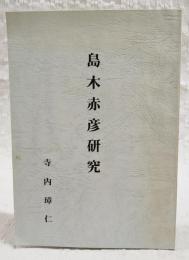 島木赤彦研究
寺内璋仁